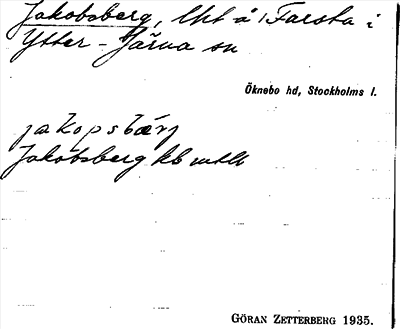 Jakobsberg, lht å Farsta i
Ytter-Järna sn
Öknebo hd, Stockholms l.
jakopsbærj
Jakobsberg
GÖRAN ZETTERBERG 1935.